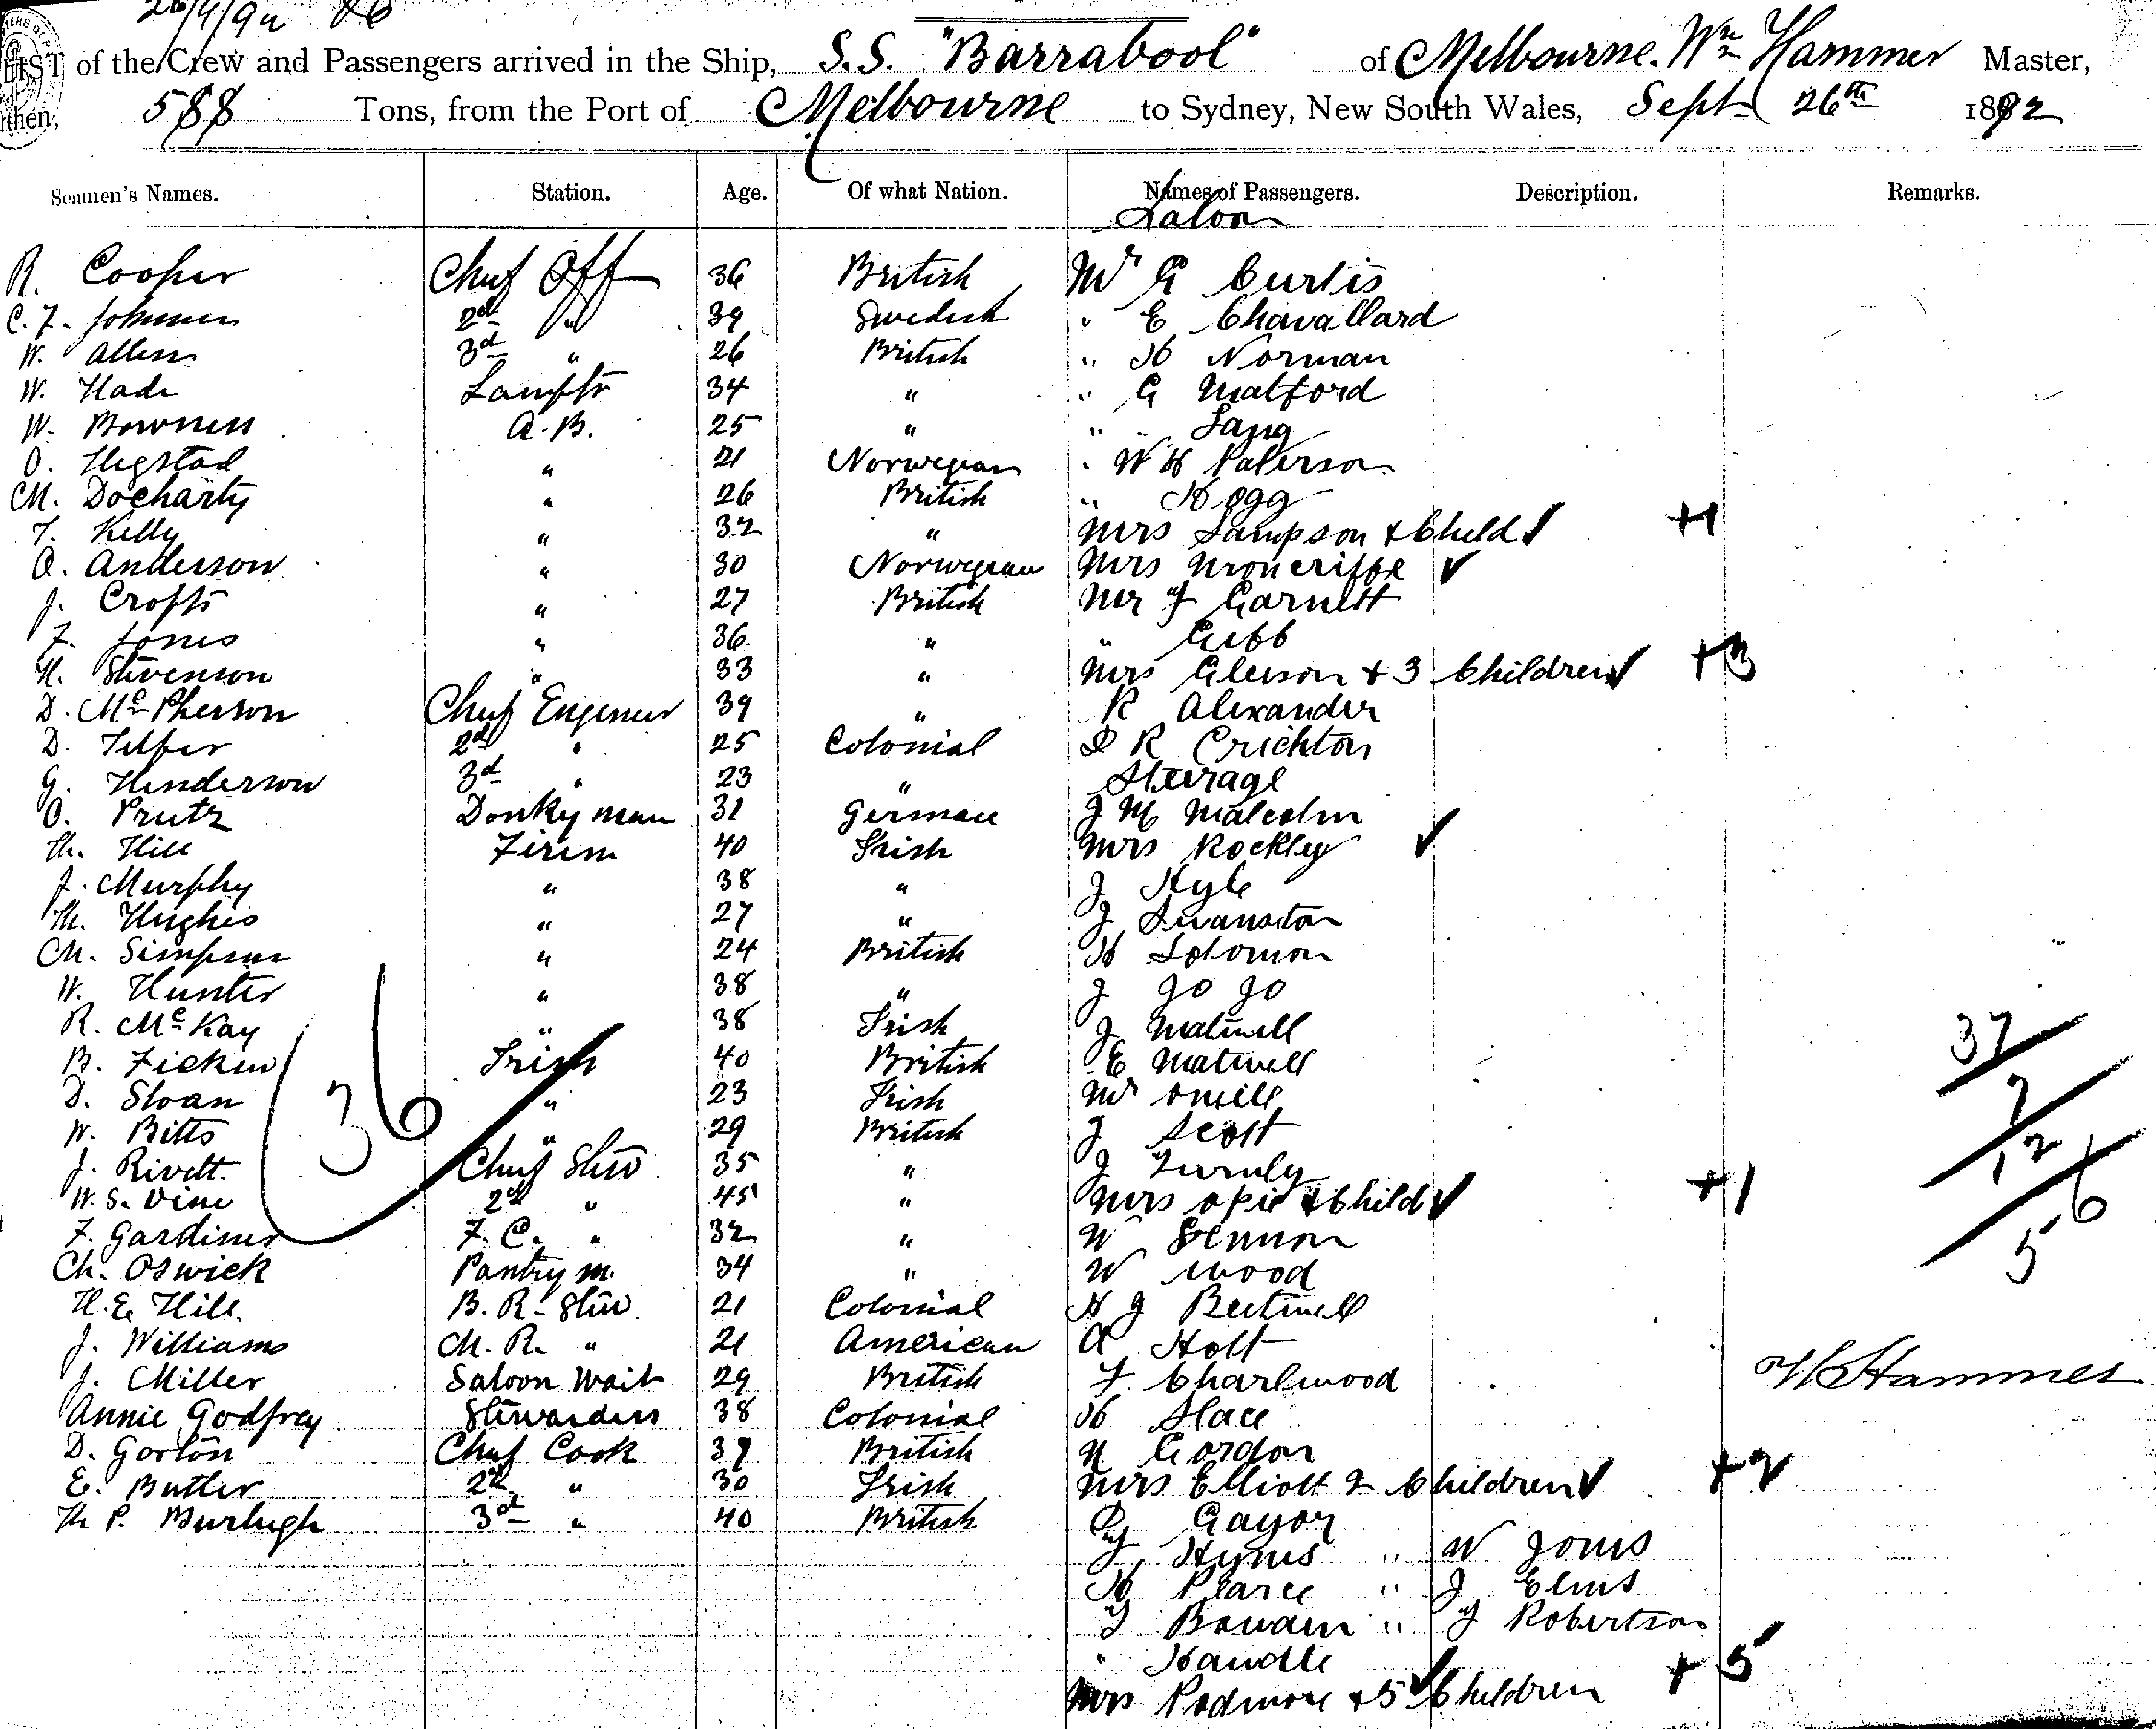 26/9/92 86
LIST of the Crew and Passengers arrived in the Ship, S.S. "Barrabool" of Melbourne. Wm Hammer Master,
Burthen, 588 Tons, from the Port of Melbourne to Sydney, New South Wales, Sept 26th 1892
Seamen's Names. Station. Age. Of what Nation. Names of Passengers. Description. Remarks.
Saloon
R. Cooper Chief Off 36 British Mr G Curtis
C. F. Johnson 2d " 39 Swedish " E Chavallard
W. Allen 3d " 26 British " H Norman
W. Hade Lamptr 34 " " G Matford
W. Bowness A.B. 25 " " Lang
O. Hegstad " 21 Norwegian " W H Paterson
M. Docharty " 26 British " Hogg
T. Kelly " 32 " Mrs Sampson + Child ✓ +1
O. Anderson " 30 Norwegian Mrs Moncriffe ✓
J. Crofts " 27 British Mr F Garnett
F. Jones " 36 " " Gibb
H. Stevenson " 33 " Mrs Gleeson + 3 Children ✓ +3
D. McPherson Chief Engineer 39 " R Alexander
D. Telfer 2d " 25 Colonial D R Crichton
G. Henderson 3d " 23 " Steerage
O. Prutz Donkyman 31 German J Mc Malcolm
Th. Hill Firem 40 Irish Mrs Rockley ✓
J. Murphy " 38 " J Kyle
Th. Hughes " 27 " J Swanston
M. Simpson " 24 British H Solomon
W. Hunter " 38 " J Jo Jo
R. McKay " 38 Irish J Matwell
B. Ficken Trim 40 British E Matwell
D. Sloan " 23 Irish Mr Oneill
W. Bitts " 29 British J Scott
J. Rivett Chief Stew 35 " J Turnly
W. S. Vine 2d " 45 " Mrs Opie + Child ✓ +1
F. Gardiner F. C. " 32 " W Lennon
Ch. Oswick Pantry m. 34 " W Wood
H. E. Hill B. R. Stew 21 Colonial H J Beetwell
J. Williams M. R. " 21 American A Holt
J. Miller Saloon Wait 29 British F Charlwood
Annie Godfrey Stewardess 38 Colonial H Slace
D. Gorton Chief Cook 37 British N Gordon
E. Butler 2d " 30 Irish Mrs Elliott 2 Children ✓ +2
Th P. Burleigh 3d " 40 British Gayor
Hyms " W Jones
H Pearce " J Elms
J Bowain " J Robertson
" Handle +5
Mrs Podmore + 5 Children
36
37
7
12
56
W Hammer